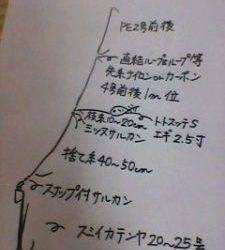 PE2号前後
直結ループtoループ等
先糸ナイロンorカーボン
4号前後1m位
枝糸10〜20cm
ミツヌサルカン
トトスッテS
エギ2.5寸
捨て糸40〜50cm
スナップ付サルカン
スミイカテンヤ20〜25号